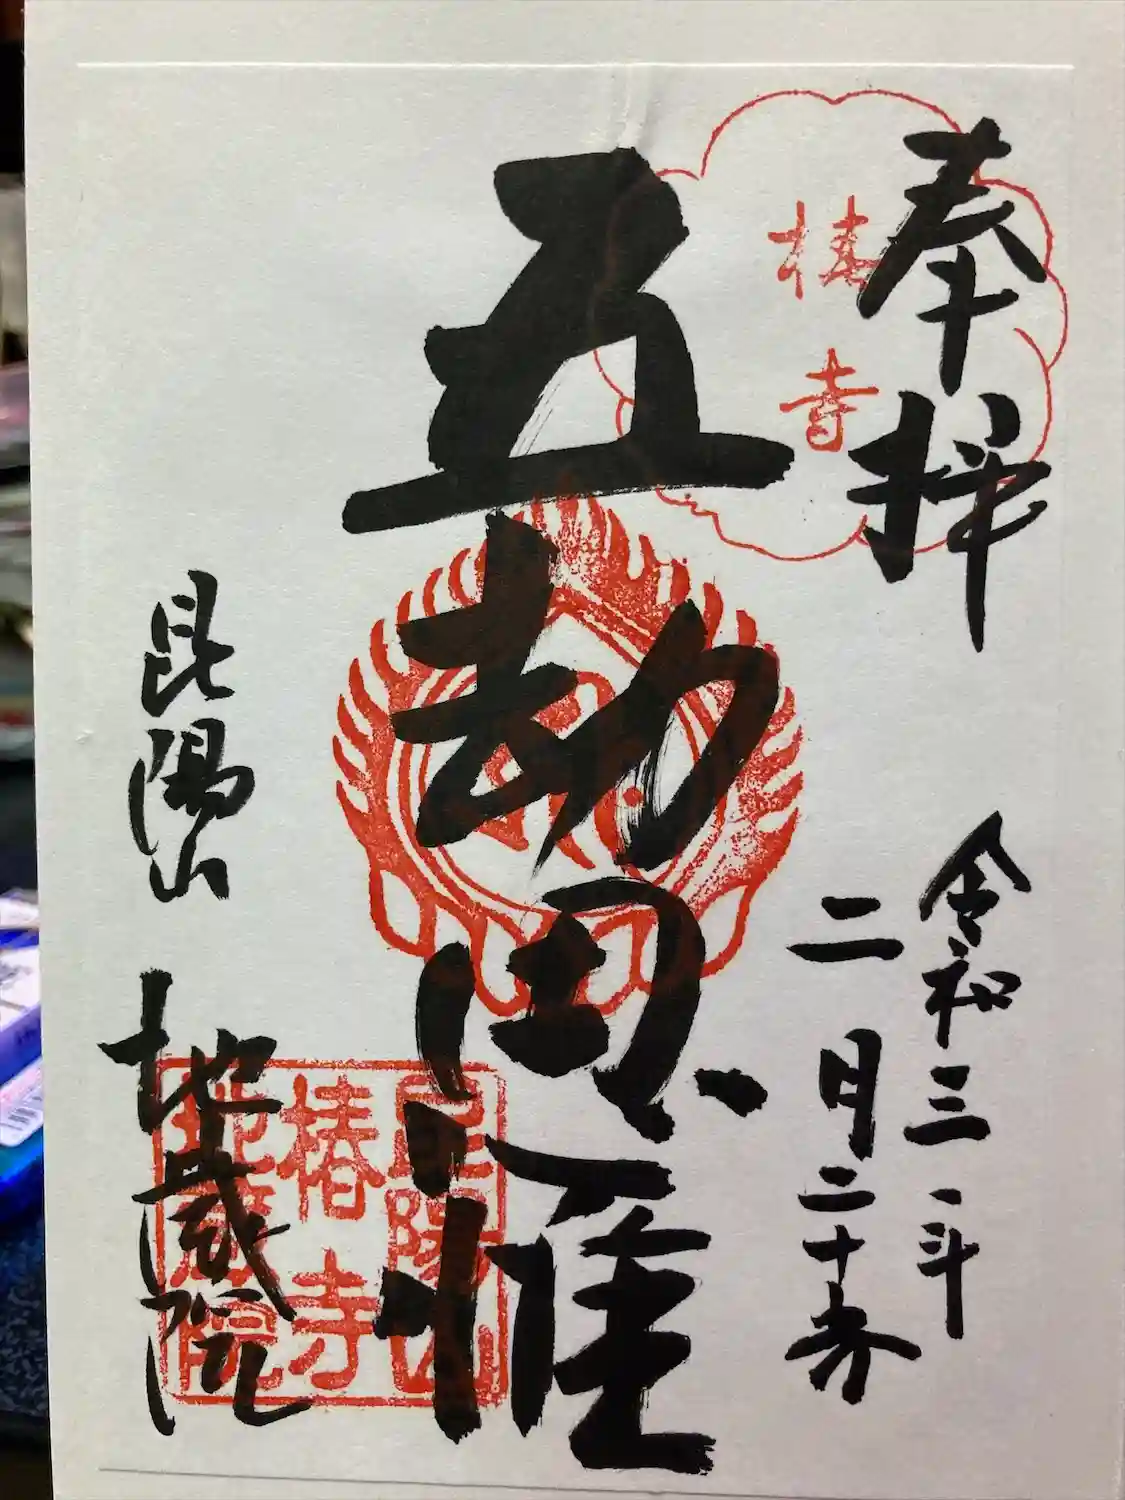 奉拝
椿寺
令和三年
二月二十六日
五劫思惟
昆陽山
地蔵院
昆陽山
椿寺
地蔵院